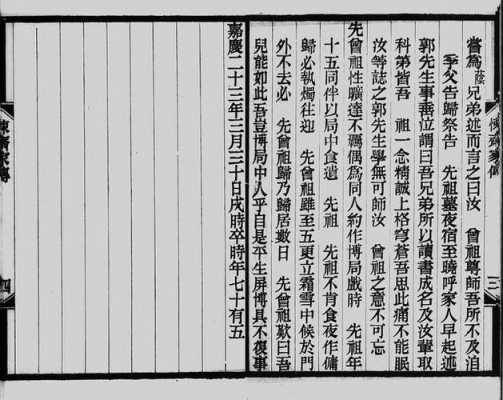 嘗爲蔭兄弟述而言之曰汝　曾祖尊師吾所不及洎
季父告歸祭告　先祖墓夜宿至曉呼家人早起述
郭先生事垂泣謂曰吾兄弟所以讀書成名及汝輩取
科第皆吾　祖一念精誠上格穹蒼吾思此痛不能眠
汝等誌之郭先生學無可師汝　曾祖之意不可忘
先曾祖性曠達不羈偶爲同人約作博局戲時　先祖年
十五同伴以局中食遺　先祖　先祖不肯食夜作傭
歸必執燭往迎　先曾祖雖至五更立霜雪中候於門
外不去必　先曾祖歸乃歸居數日　先曾祖歎曰吾
兒能如此吾豈博局中人乎自是平生屏博具不復事
三
嘉慶二十三年三月三十日戌時卒時年七十有五
陳氏家傳
四